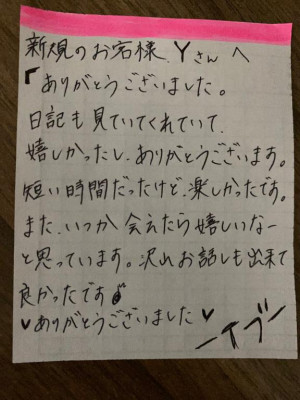 新規のお客様 Yさんへ
「ありがとうございました。
日記も見ていてくれていて、
嬉しかったし、ありがとうございます。
短い時間だったけど、楽しかったです。
また、いつか会えたら嬉しいなー
と思っています。沢山お話しも出来て
良かったです
♥ありがとうございました♥
ーイブー